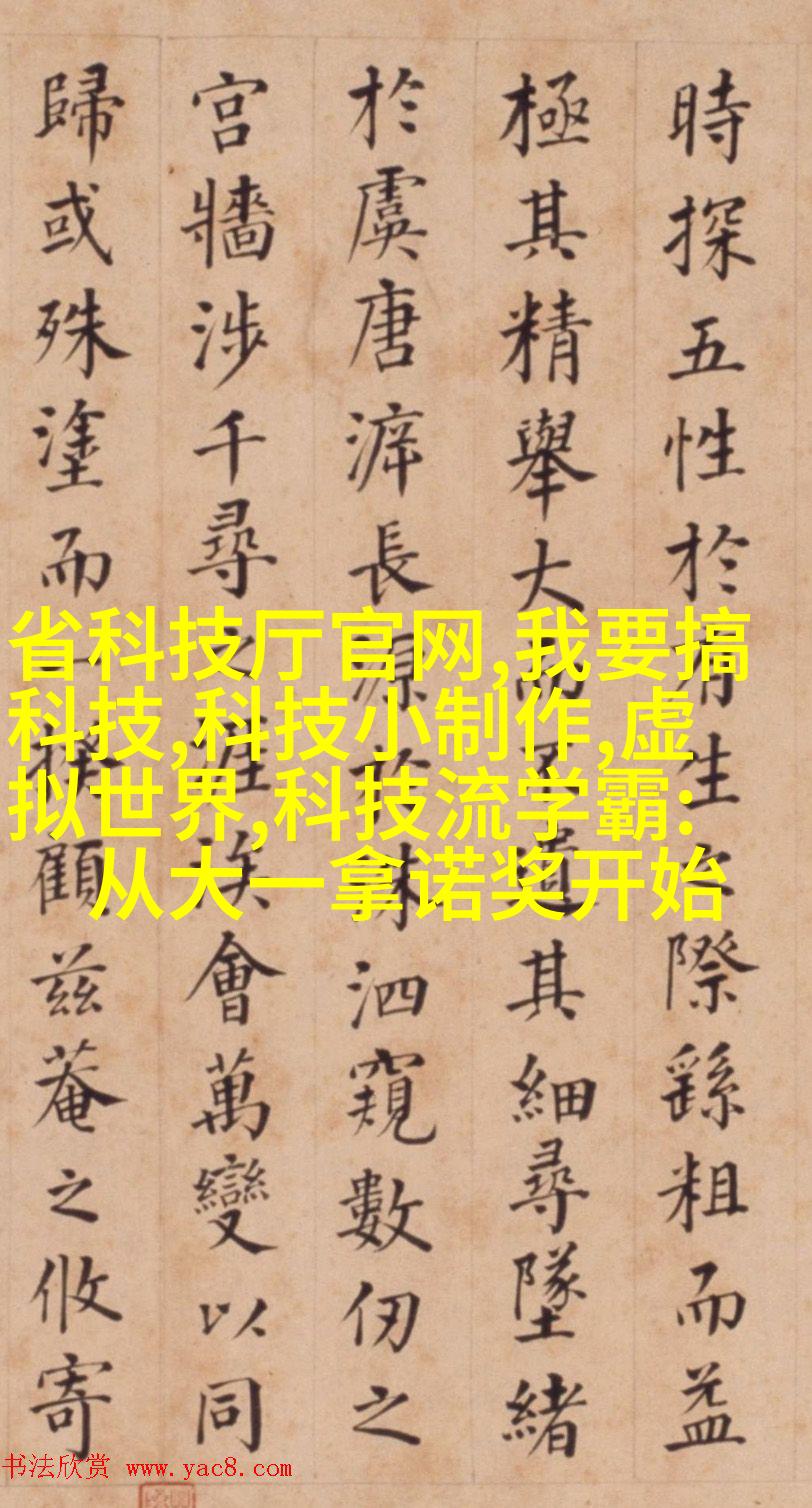 時探五性於有生之際繇粗而益
極其精舉大而不遺其細尋墜緒
於虞唐長源於洙泗窺數仞之
宮牆涉千尋之涯涘會萬變以同
歸或殊塗而一揆顧茲菴之攸寄
省科技厅官网,我要搞
科技,科技小制作,虚
拟世界,科技流学霸:
从大一拿诺奖开始
书法欣赏 www.yac8.com